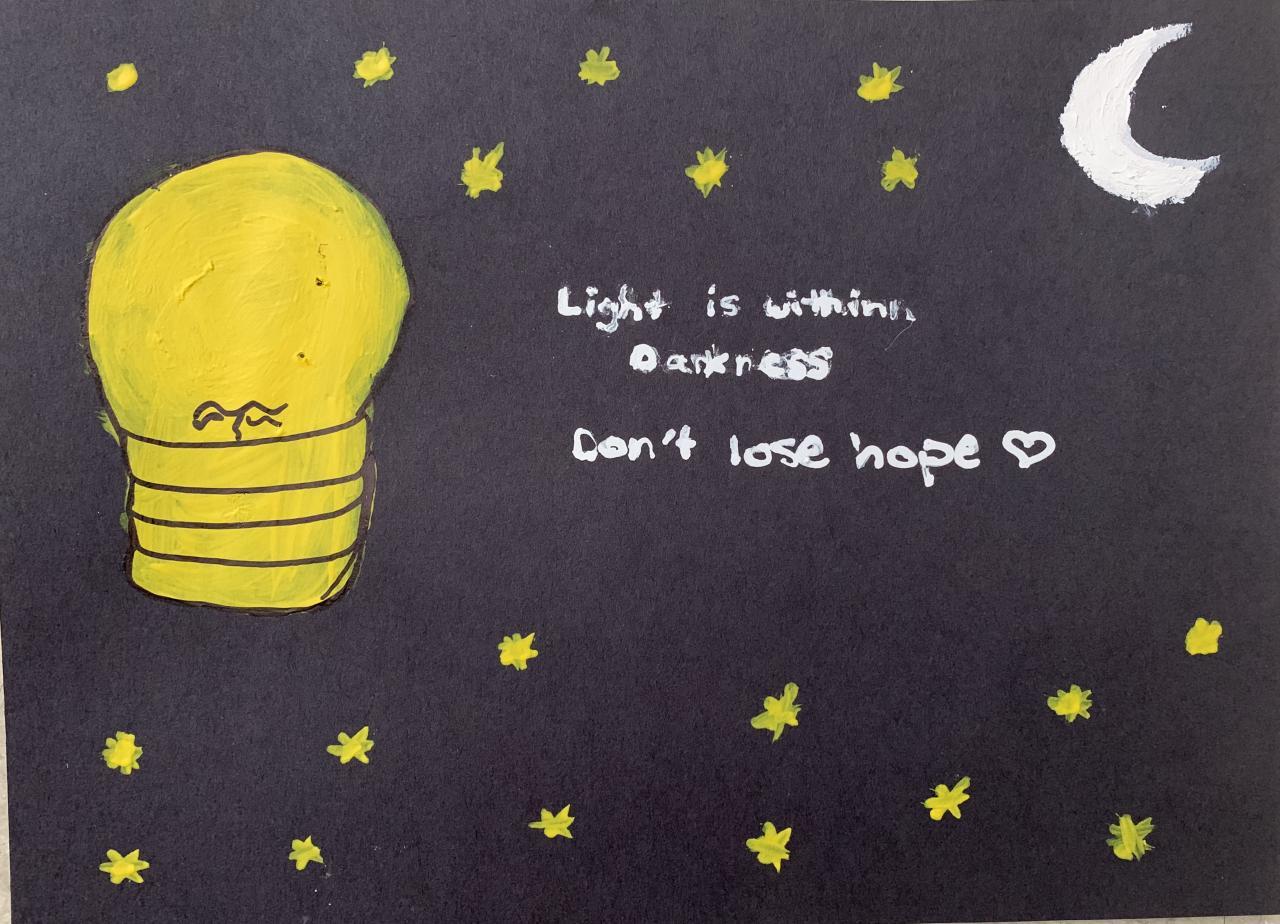 Light is withinn
Darkness
Don't lose hope ♡